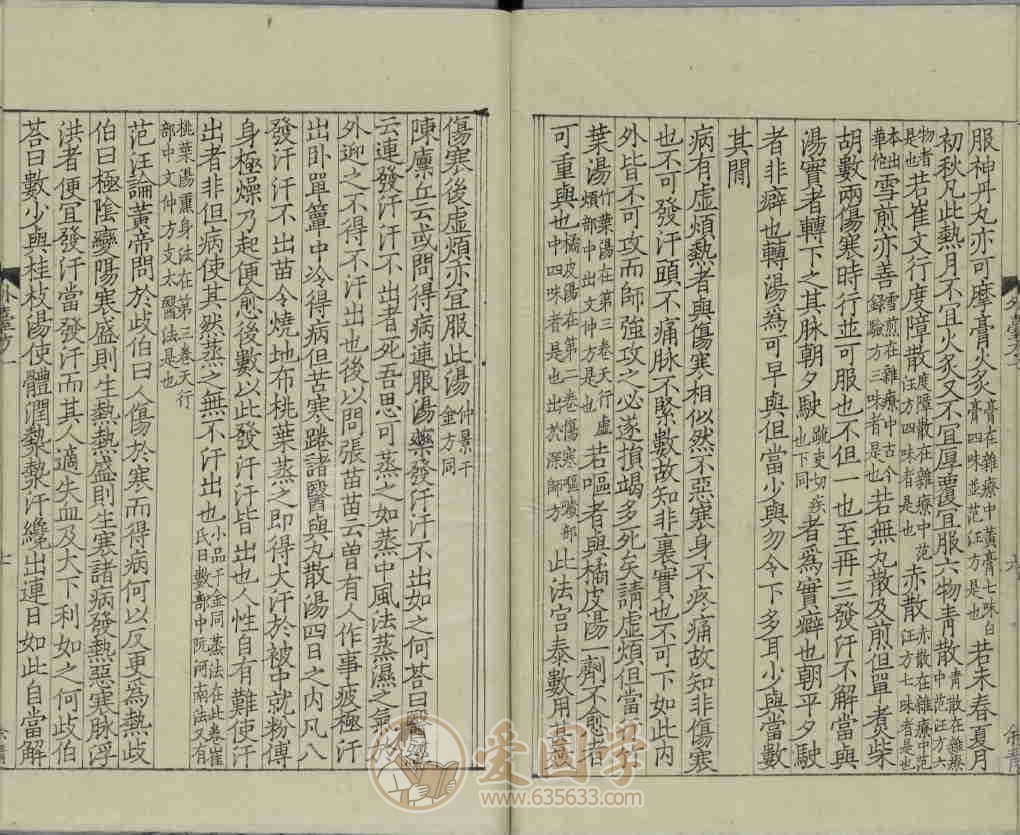 服神丹丸亦可摩膏火炙膏在雜療中黃膏七味白膏四味並范汪方是也若末春夏月
初秋凡此熱月不宜火炙又不宜厚覆宜服六物青散青散在雜療中范汪方六
物者是也若崔文行度障散度障散在雜療中范汪方四味者是也赤散赤散在雜療中范汪方七味者是也
本出華佗雪煎亦善雪煎在雜療中古今錄驗方三味者是也若無丸散及煎但單煮柴
胡數兩傷寒時行並可服也不但一也至再三發汗不解當與
湯實者轉下之其脉朝夕駛駛疏吏切疾也下同者為實癖也朝平夕駛
者非癖也轉湯為可早與但當少與勿令下多耳少與當數
其間
病有虛煩熱者與傷寒相似然不惡寒身不疼痛故知非傷寒
也不可發汗頭不痛脉不緊數故知非裏實也不可下如此內
外皆不可攻而師強攻之必遂損竭多死矣諸虛煩但當
葉湯竹葉湯在第三卷天行虛煩部中出文仲方是也若嘔者與橘皮湯一劑不愈者
可重與也橘皮湯在第二卷傷寒嘔噦部中四味者是也出於深師方此法宮泰數用甚效
傷寒後虛煩亦宜服此湯仲景千金方同
陳廩丘云或問得病連服湯藥發汗汗不出如之何荅曰醫經
云連發汗汗不出者死吾思可蒸之如蒸中風法蒸濕之氣於
外迎之不得不汗出也後以問張苗苗云曾有人作事疲極汗
出卧單簟中冷得病但苦寒踡諸醫與丸散湯四日之內凡八
發汗汗不出苗令燒地布桃葉蒸之即得大汗於被中就粉傅
身極燥乃起便愈後數以此發汗汗皆出也人性自有難使汗
出者非但病使其然蒸之無不汗出也小品千金同蒸法在此卷崔氏日數部中阮河南法又有
桃葉湯熏身法在第三卷天行部中文仲方支太醫法是也
范汪論黃帝問於歧伯曰人傷於寒而得病何以反更為熱歧
伯曰極陰變陽寒盛則生熱熱盛則生寒諸病發熱惡寒脉浮
洪者便宜發汗當發汗而其人適失血及大下利如之何歧伯
荅曰數少與桂枝湯使體潤漐漐汗纔出連日如此自當解
愛國學
www.635633.com